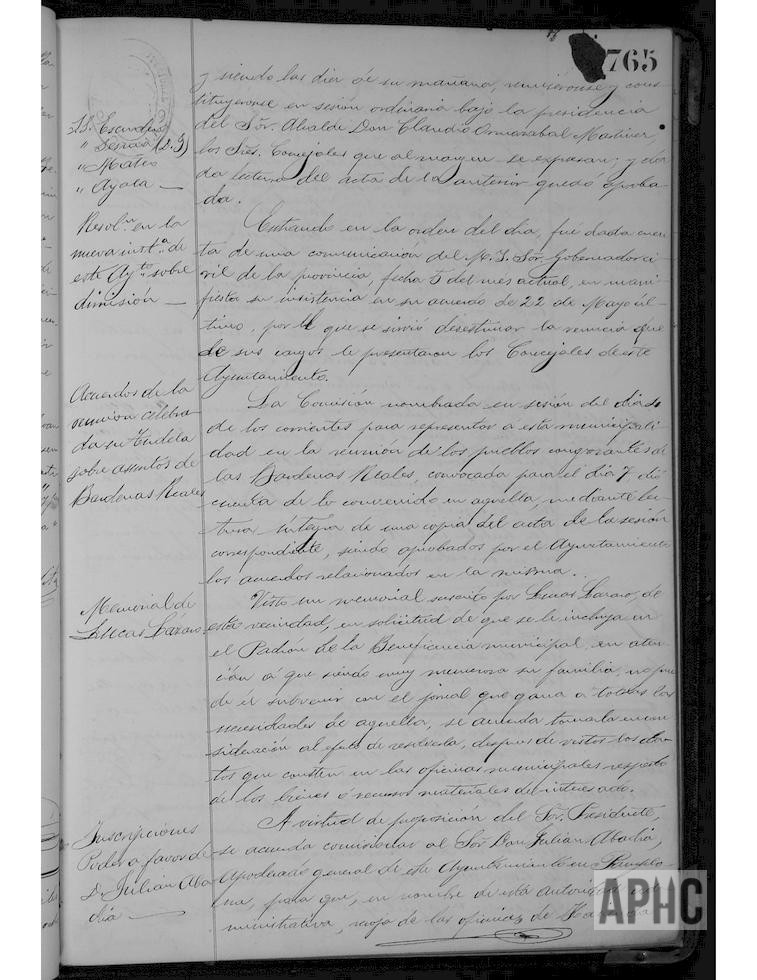 765
y siendo las diez de su mañana, reuniéronse y cons-
tituyeronse en sesión ordinaria bajo la presidencia
del Sor. Alcalde Don Claudio Ormazabal Martinez,
los Sres. Concejales que al margen se expresan; y da-
da lectura del acta de la anterior quedó aproba-
da.
SS. Escudero
" (D. J)
" Mateo
" Ayala
Resoln. en la
nueva inst.a de
este Ayto. sobre
dimisión
Entrando en la orden del dia, fué dada cuen-
ta de una comunicación del M. I. Sor. Gobernador ci-
vil de la provincia, fecha 5 del mes actual, en mani-
fiesta su insistencia en su acuerdo de 22 de Mayo úl-
timo, por el que se sirvió desestimar la renuncia que
de sus cargos le presentaron los Concejales de este
Ayuntamiento.
Acuerdos de la
reunion celebra-
da en Tudela
sobre asuntos de
Bardenas Reales
La Comisión nombrada en sesión del dia
de los corrientes para representar á esta municipali-
dad en la reunión de los pueblos congozantes de
las Bardenas Reales, convocada para el dia 7 dió
cuenta de lo convenido en aquella, mediante lec-
tura integra de una copia del acta de la sesión
correspondiente, siendo aprobados por el Ayuntamiento
los acuerdos relacionados en la misma.
Memorial de
Lucas Lázaro
Visto un memorial suscrito por Lucas Lázaro, de
esta vecindad, en solicitud de que se le incluya en
el Padron de la Beneficencia municipal, en aten-
ción á que siendo muy numerosa su familia, no pue-
de él subvenir con el jornal que gana á todas las
necesidades de aquella, se acuerda tomarla en con-
sideración al efecto de resolverla, despues de vistos los da-
tos que consten en las oficinas municipales respecto
de los bienes ó recursos materiales del interesado.
Inscripciones
Poder a favor de
D. Julian Aba
dia
A virtud de proposición del Sor. Presidente,
se acuerda comisionar al Sor. Don Julian Abadia,
Apoderado general de este Ayuntamiento en Pamplo-
na, para que, en nombre de esta autoridad ad-
ministrativa, recoja de las oficinas de Hacienda
APHC